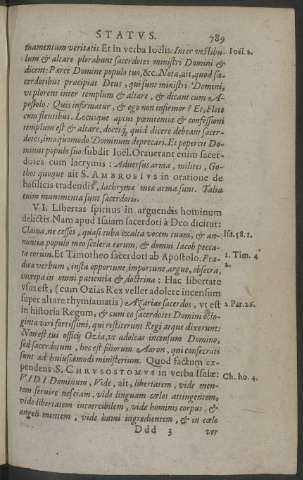 STATVS. 789
tinamentum veritatis Et in verba Ioëlis: Inter vestibu- Ioël. 2.
lum & altare plorabunt sacerdotes ministri Domini &
dicent: Parce Domine populo tuo, &c. Nota, ait, quod sa-
cerdotibus præcipiat Deus, qui sunt ministri Domini,
vt plorent inter templum & altare, & dicant cum A-
postolo: Quis infirmatur, & ego non infirmor? Et, Flete
cum flentibus. Locusque aptus pœnitentiæ & confessioni
templum est & altare, doctique, quid dicere debeant sacer-
dotes, imo quomodo Dominum deprecari. Et pepercit Do-
minus populo suo: subdit Ioël. Orauerant enim sacer-
dotes cum lacrymis: Aduersus arma, milites, Go-
thos quoque ait S. AMBROSIVS in oratione de
basilicis tradendis, lachrymæ meæ arma sunt. Talia
enim munimenta sunt sacerdotis.
VI. Libertas spiritus in arguendis hominum
delictis. Nam apud Isaiam sacerdoti à Deo dicitur:
Clama, ne cesses, quasi tuba exalta vocem tuam, & an- Isa. 58. 1.
nuntia populo meo scelera eorum, & domui Iacob pecca-
ta eorum. Et Timotheo sacerdoti ab Apostolo: Præ- 1. Tim. 4
dica verbum, insta opportune, importune, argue, obsecra, 2.
increpa in omni patientia & doctrina: Hac libertate
vsus est, (cum Ozias Rex vellet adolere incensum
super altare thymiamatis) Azarias sacerdos, vt est 2. Par. 26.
in historia Regum, & cum eo sacerdotes Domini octo-
ginta viri fortissimi, qui restiterunt Regi atque dixerunt:
Non est tui officij Ozia, vt adoleas incensum Domino,
sed sacerdotum, hoc est filiorum Aaron, qui consecrati
sunt ad huiuscemodi ministerium. Quod factum ex-
pendens S. CHRYSOSTOMVS in verba Isaiæ: Ch. ho. 4.
VIDI Dominum, Vide, ait, libertatem, vide men-
tem seruire nesciam, vide linguam cælos attingentem,
vide libertatem incoercibilem, vide hominis corpus, &
angeli mentem, vide humi ingredientem, & in cælo
Ddd 3 ver